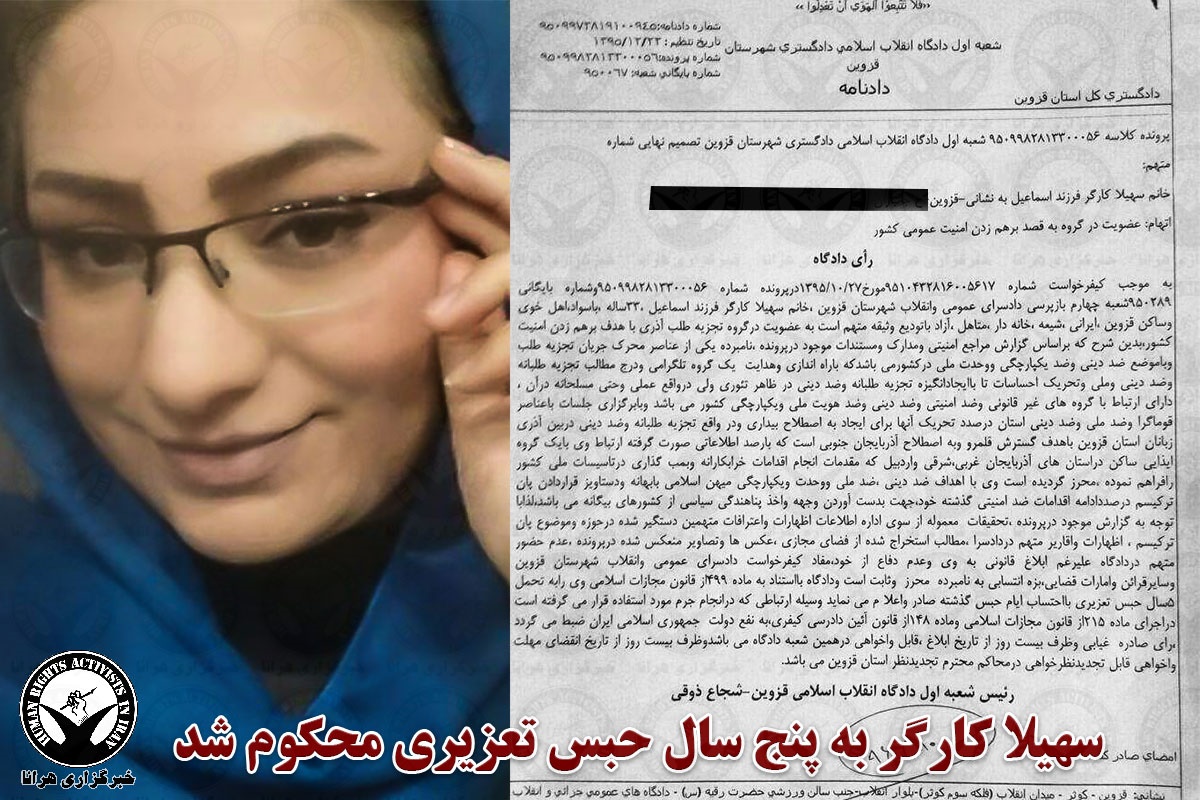 «فلا تتبعوا الهوی ان تعدلوا»
شماره دادنامه:۹۵۰۹۹۷۲۸۱۹۱۰۰۹۴۵
تاریخ تنظیم : ۱۳۹۵/۱۲/۲۳
شماره پرونده:۹۵۰۹۹۸۲۸۱۳۳۰۰۰۵۶
شماره بایگانی شعبه: ۹۵۰۰۶۷
شعبه اول دادگاه انقلاب اسلامی دادگستری شهرستان
قزوین
دادنامه
دادگستری کل استان قزوین
پرونده کلاسه ۹۵۰۹۹۸۲۸۱۳۳۰۰۰۵۶ شعبه اول دادگاه انقلاب اسلامی دادگستری شهرستان قزوین تصمیم نهایی شماره
متهم:
خانم سهیلا کارگر فرزند اسماعیل به نشانی-قزوین
اتهام: عضویت در گروه به قصد برهم زدن امنیت عمومی کشور
رأی دادگاه
به موجب کیفرخواست شماره ۹۵۱۰۴۳۲۸۱۶۰۰۵۶۱۷مورخ۱۳۹۵/۱۰/۲۷درپرونده شماره ۹۵۰۹۹۸۲۸۱۳۳۰۰۰۵۶وشماره بایگانی
۹۵۰۲۸۹شعبه چهارم بازپرسی دادسرای عمومی وانقلاب شهرستان قزوین ،خانم سهیلا کارگر فرزند اسماعیل ،۳۳ساله ،باسواد،اهل خوی
وساکن قزوین ،ایرانی ،شیعه ،خانه دار ،متاهل ،آزاد باتودیع وثیقه متهم است به عضویت درگروه تجزیه طلب آذری با هدف برهم زدن امنیت
کشور،بدین شرح که براساس گزارش مراجع امنیتی ومدارک ومستندات موجود درپرونده ،نامبرده یکی از عناصر محرک جریان تجزیه طلب
وباموضع ضد دینی وضد یکپارچگی ووحدت ملی درکشورمی باشدکه باراه اندازی وهدایت یک گروه تلگرامی ودرج مطالب تجزیه طلبانه
وضد دینی وملی وتحریک احساسات تا باایجادانگیزه تجزیه طلبانه وضد دینی در ظاهر تئوری ولی درواقع عملی وحتی مسلحانه درآن ،
دارای ارتباط با گروه های غیر قانونی وضد امنیتی وضد دینی وضد هویت ملی ویکپارچگی کشور می باشد وبابرگزاری جلسات باعناصر
قوماگرا وضد ملی وضد دینی استان درصدد تحریک آنها برای ایجاد به اصطلاح بیداری ودر واقع تجزیه طلبانه وضد دینی دربین آذری
زبانان استان قزوین باهدف گسترش قلمرو وبه اصطلاح آذربایجان جنوبی است که بارصد اطلاعاتی صورت گرفته ارتباط وی بایک گروه
ایذایی ساکن دراستان های آذربایجان غربی،شرقی واردبیل که مقدمات انجام اقدامات خرابکارانه وبمب گذاری درتاسیسات ملی کشور
رافراهم نموده ،محرز گردیده است وی با اهداف ضد دینی ،ضد ملی ووحدت ویکپارچگی میهن اسلامی بابهانه ودستاویز قراردادن پان
ترکیسم درصددادامه اقدامات ضد امنیتی گذشته خود،جهت بدست آوردن وجهه واخذ پناهندگی سیاسی از کشورهای بیگانه می باشد،لذابا
توجه به گزارش موجود درپرونده ،تحقیقات معموله از سوی اداره اطلاعات اظهارات واعترافات متهمین دستگیر شده درحوزه وموضوع پان
ترکیسم ، اظهارات واقاریر متهم دردادسرا ،مطالب استخراج شده از فضای مجازی ،عکس ها وتصاویر منعکس شده درپرونده ،عدم حضور
متهم دردادگاه علیرغم ابلاغ قانونی به وی وعدم دفاع از خود،مفاد کیفرخواست دادسرای عمومی وانقلاب شهرستان قزوین
وسایرقرائن وامارات قضایی،بزه انتسابی به نامبرده محرز وثابت است ودادگاه بااستناد به ماده ۴۹۹از قانون مجازات اسلامی وی رابه تحمل
۵سال حبس تعزیری بااحتساب ایام حبس گذشته صادر واعلا م می نماید وسیله ارتباطی که درانجام جرم مورد استفاده قرار می گرفته است
دراجرای ماده ۲۱۵از قانون مجازات اسلامی وماده ۱۴۸از قانون آئین دادرسی کیفری،به نفع دولت جمهوری اسلامی ایران ضبط می گردد
،رای صادره غیابی وظرف بیست روز از تاریخ ابلاغ ،قابل واخواهی درهمین شعبه دادگاه می باشدوظرف بیست روز از تاریخ انقضای مهلت
واخواهی قابل تجدیدنظرخواهی درمحاکم محترم تجدیدنظر استان قزوین می باشد.
رئیس شعبه اول دادگاه انقلاب اسلامی قزوین-شجاع ذوقی
سهیلا کارگر به پنج سال حبس تعزیری محکوم شد
امضای صادر
نشانی: قزوین - کوثر - میدان انقلاب (فلکه سوم کوثر)-بلوار انقلاب-جنب سالن ورزشی حضرت رقیه (س) - دادگاه های عمومی جزائی و انقلاب
HUMAN RIGHTS ACTIVISTS IN IRAN
خبرگزاری هرانا